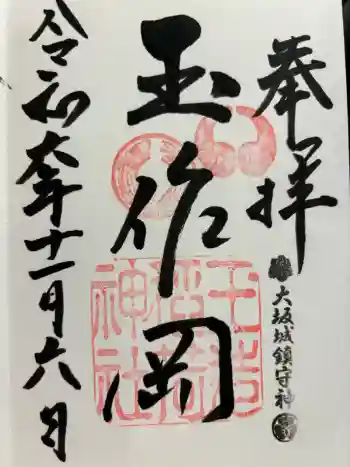 奉拝
大坂城鎮守神
玉作岡
玉造
稲荷
神社
令和六年十一月六日